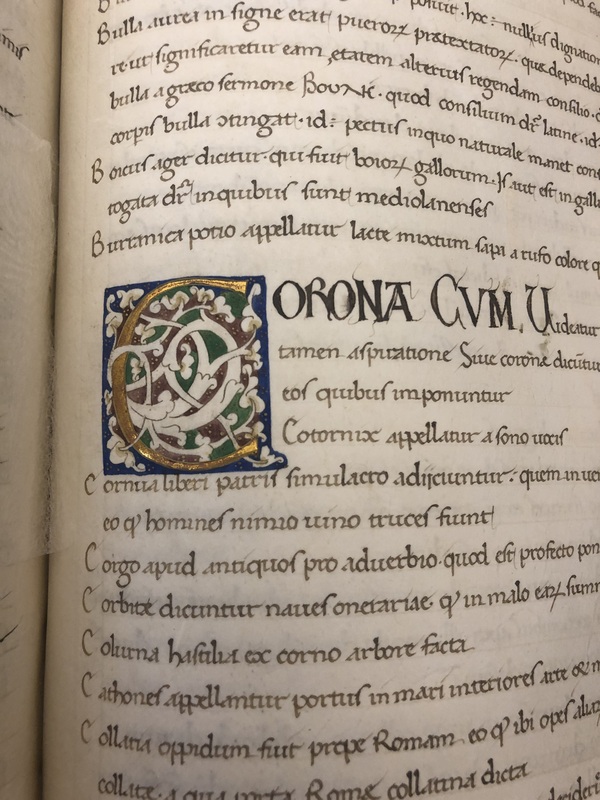 potuit · hoc : nullius dignation
Bulla aurea in signe erat pueroꝝ prætextatoꝝ · quæ dependeb
re · ut significaretur eam ętatem alterius regendam consilio ·
bulla a græco sermone Βουλὴ · quod consilium dr̄ latine · id
corpis bulla ↄtingat · id : pectus inquo naturale manet cons
Boicus ager dicitur · qui fuit boioꝝ gallorum · Is aut est in galla
togata dr̄ inquibus sunt mediolanenses
Burranica potio appellatur lacte mixtum sapa a rufo colore q
CORONA CVM Uideatur
tamen aspiratione Siue corōnæ dicūtur
eos quibus imponuntur
Cotornix appellatur a sono uocis
Cornua liberi patris simulacro adijciuntur : quem in uen
eo ꝙ homines nimio uino truces fiunt
Coigo apud antiquos pro aduerbio · quod est profecto pon
Corbitæ dicuntur naues onerariae · ꝙ in malo eaꝝ summ
Colurna hastilia ex corno arbore facta
Cathones appellantur portus in mari interiores arte &
Collatia oppidum fuit prope Romam · eo ꝙ ibi opes aliaꝝ
collatæ · a qua porta Romæ collatina dicta